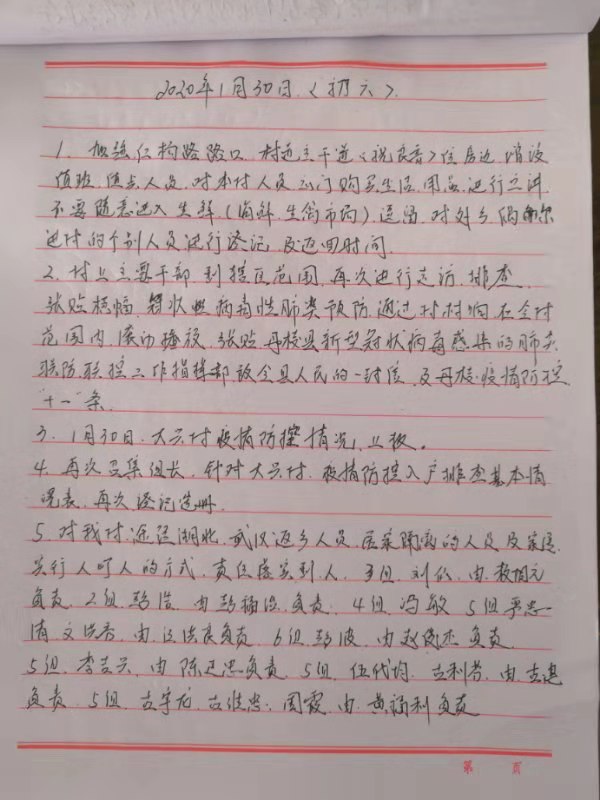 2020年1月30日.〈初六〉.
1. 加强仁构路路口. 村道主干道〈祝良香〉住房边. 增设
值班. 值点人员. 对本村人员 出门购买生活用品. 进行立讲.
不要随意进入生鲜(海鲜.生禽市场). 逗留. 对外乡偶尔
进村的个别人员进行登记. 及返回时间.
2. 村上主要干部 到接点范围. 再次进行走访. 排查.
张贴横幅. 冠状 病毒性肺炎预防. 通过村村响在全村
范围内 滚动播放. 张贴丹棱县新型冠状病毒感染的肺炎
联防联控工作指挥部致全县人民的一封信. 及丹棱疫情防控
"十一"条.
3. 1月30日. 大兴村疫情防控情况. 上报.
4. 再次召集组长. 针对大兴村. 疫情防控入户排查基本情
况表. 再次登记造册.
5. 对我村. 途径湖北. 武汉返乡人员. 居家隔离的人员及家属.
实行人盯人的方式. 责任落实到人. 3组. 刘 由
负责. 2组. 由 负责. 4组. 冯敏 5组
由 负责. 6组. 波. 由赵 杰负责.
5组. 李吉兴. 由 陈 忠负责. 5组. 伍代均. 由
负责. 5组. 周霞. 由 黄福利负责
第 页